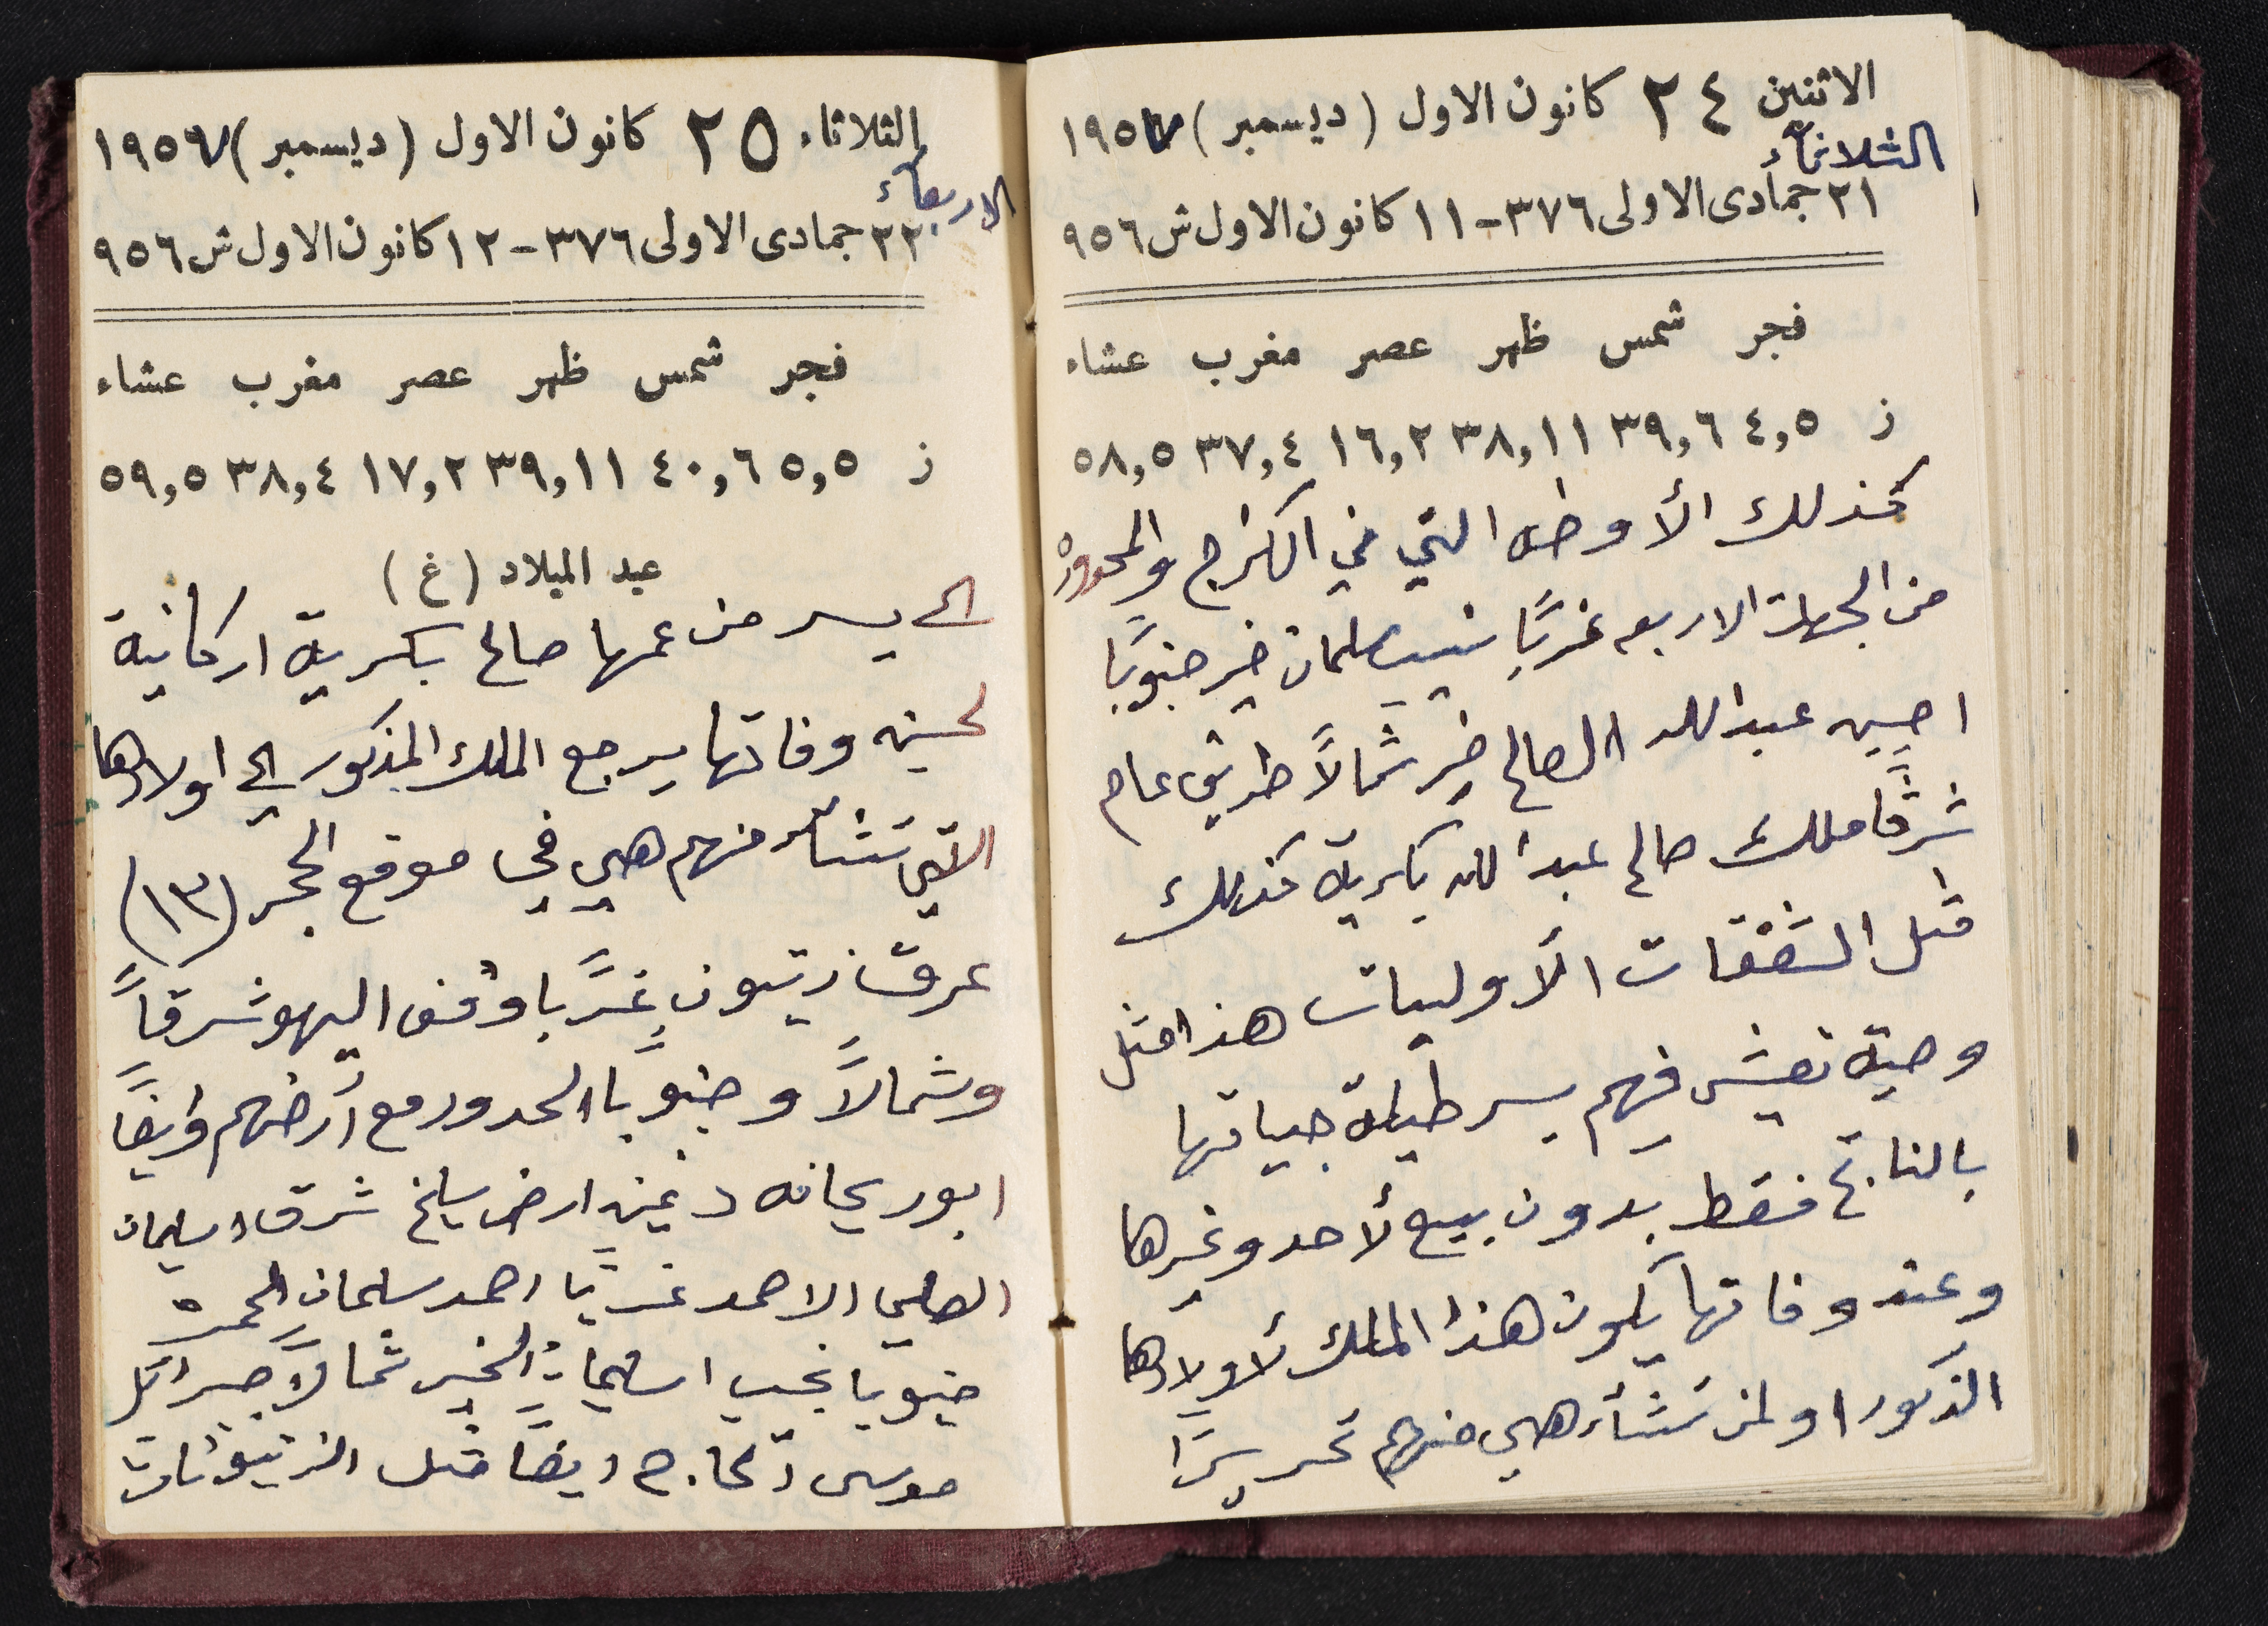 الاثنين ٢٤ كانون الاول (ديسمبر) ١٩٥٧
الثلاثاء
٢١ جمادى الاولى ٣٧٦-١١ كانون الاول ش ٩٥٦
فجر شمس ظهر عصر مغرب عشاء
ز ٤,٥ ٣٩,٦ ٣٨,١١ ١٦,٢ ٣٧,٤ ٥٨,٥
كذلك الأوض التي في الكرج والمحدوده
من الجهات الاربعه غربًا نسيب سلمان خير جنوبًا
احسين عبدالله الصالح خير شمالاً طريق عام
شرقًا ملك صالح عبدالله بكرية كذلك
مثل الشقفات الأوليات هذا مثل
وصية تعيش فيهم يسر طيلة حياتها
بالناتج فقط بدون بيع لأحد وغيرها
وعند وفاتها يكون هذا الملك لأولادها
الذكور او لمن تشأ هي منهم تحريرًا
الثلاثاء ٢٥ كانون الاول (ديسمبر) ١٩٥٧
الاربعاء
٢٢ جمادى الاولى ٣٧٦-١٢ كانون الاول ش ٩٥٦
فجر شمس ظهر عصر مغرب عشاء
ز ٥,٥ ٤٠,٦ ٣٩,١١ ١٧,٢ ٣٨,٤ ٥٩,٥
عيد الميلاد (غ)
الى يسر من عمها صالح بكرية اركانية
لحين وفاتها يرجع الملك المذكور الى اولادها
التي تشأ منهم هي في موقع الحجر (١٣)
عرق زيتون غربًا وقف اليهو شرقاً
وشمالاً وجنوبًا الحدود مع أرضهم وايضًا
ابوريحانه دغين ارض سليخ شرقا سليمان
العلي الاحمد غربًا احمد سلمان الحمره
جنوبًا نجيب اسليمان الخير شمالاً جبرائيل
موسى الحاج ايضًا مثل الزيتونات